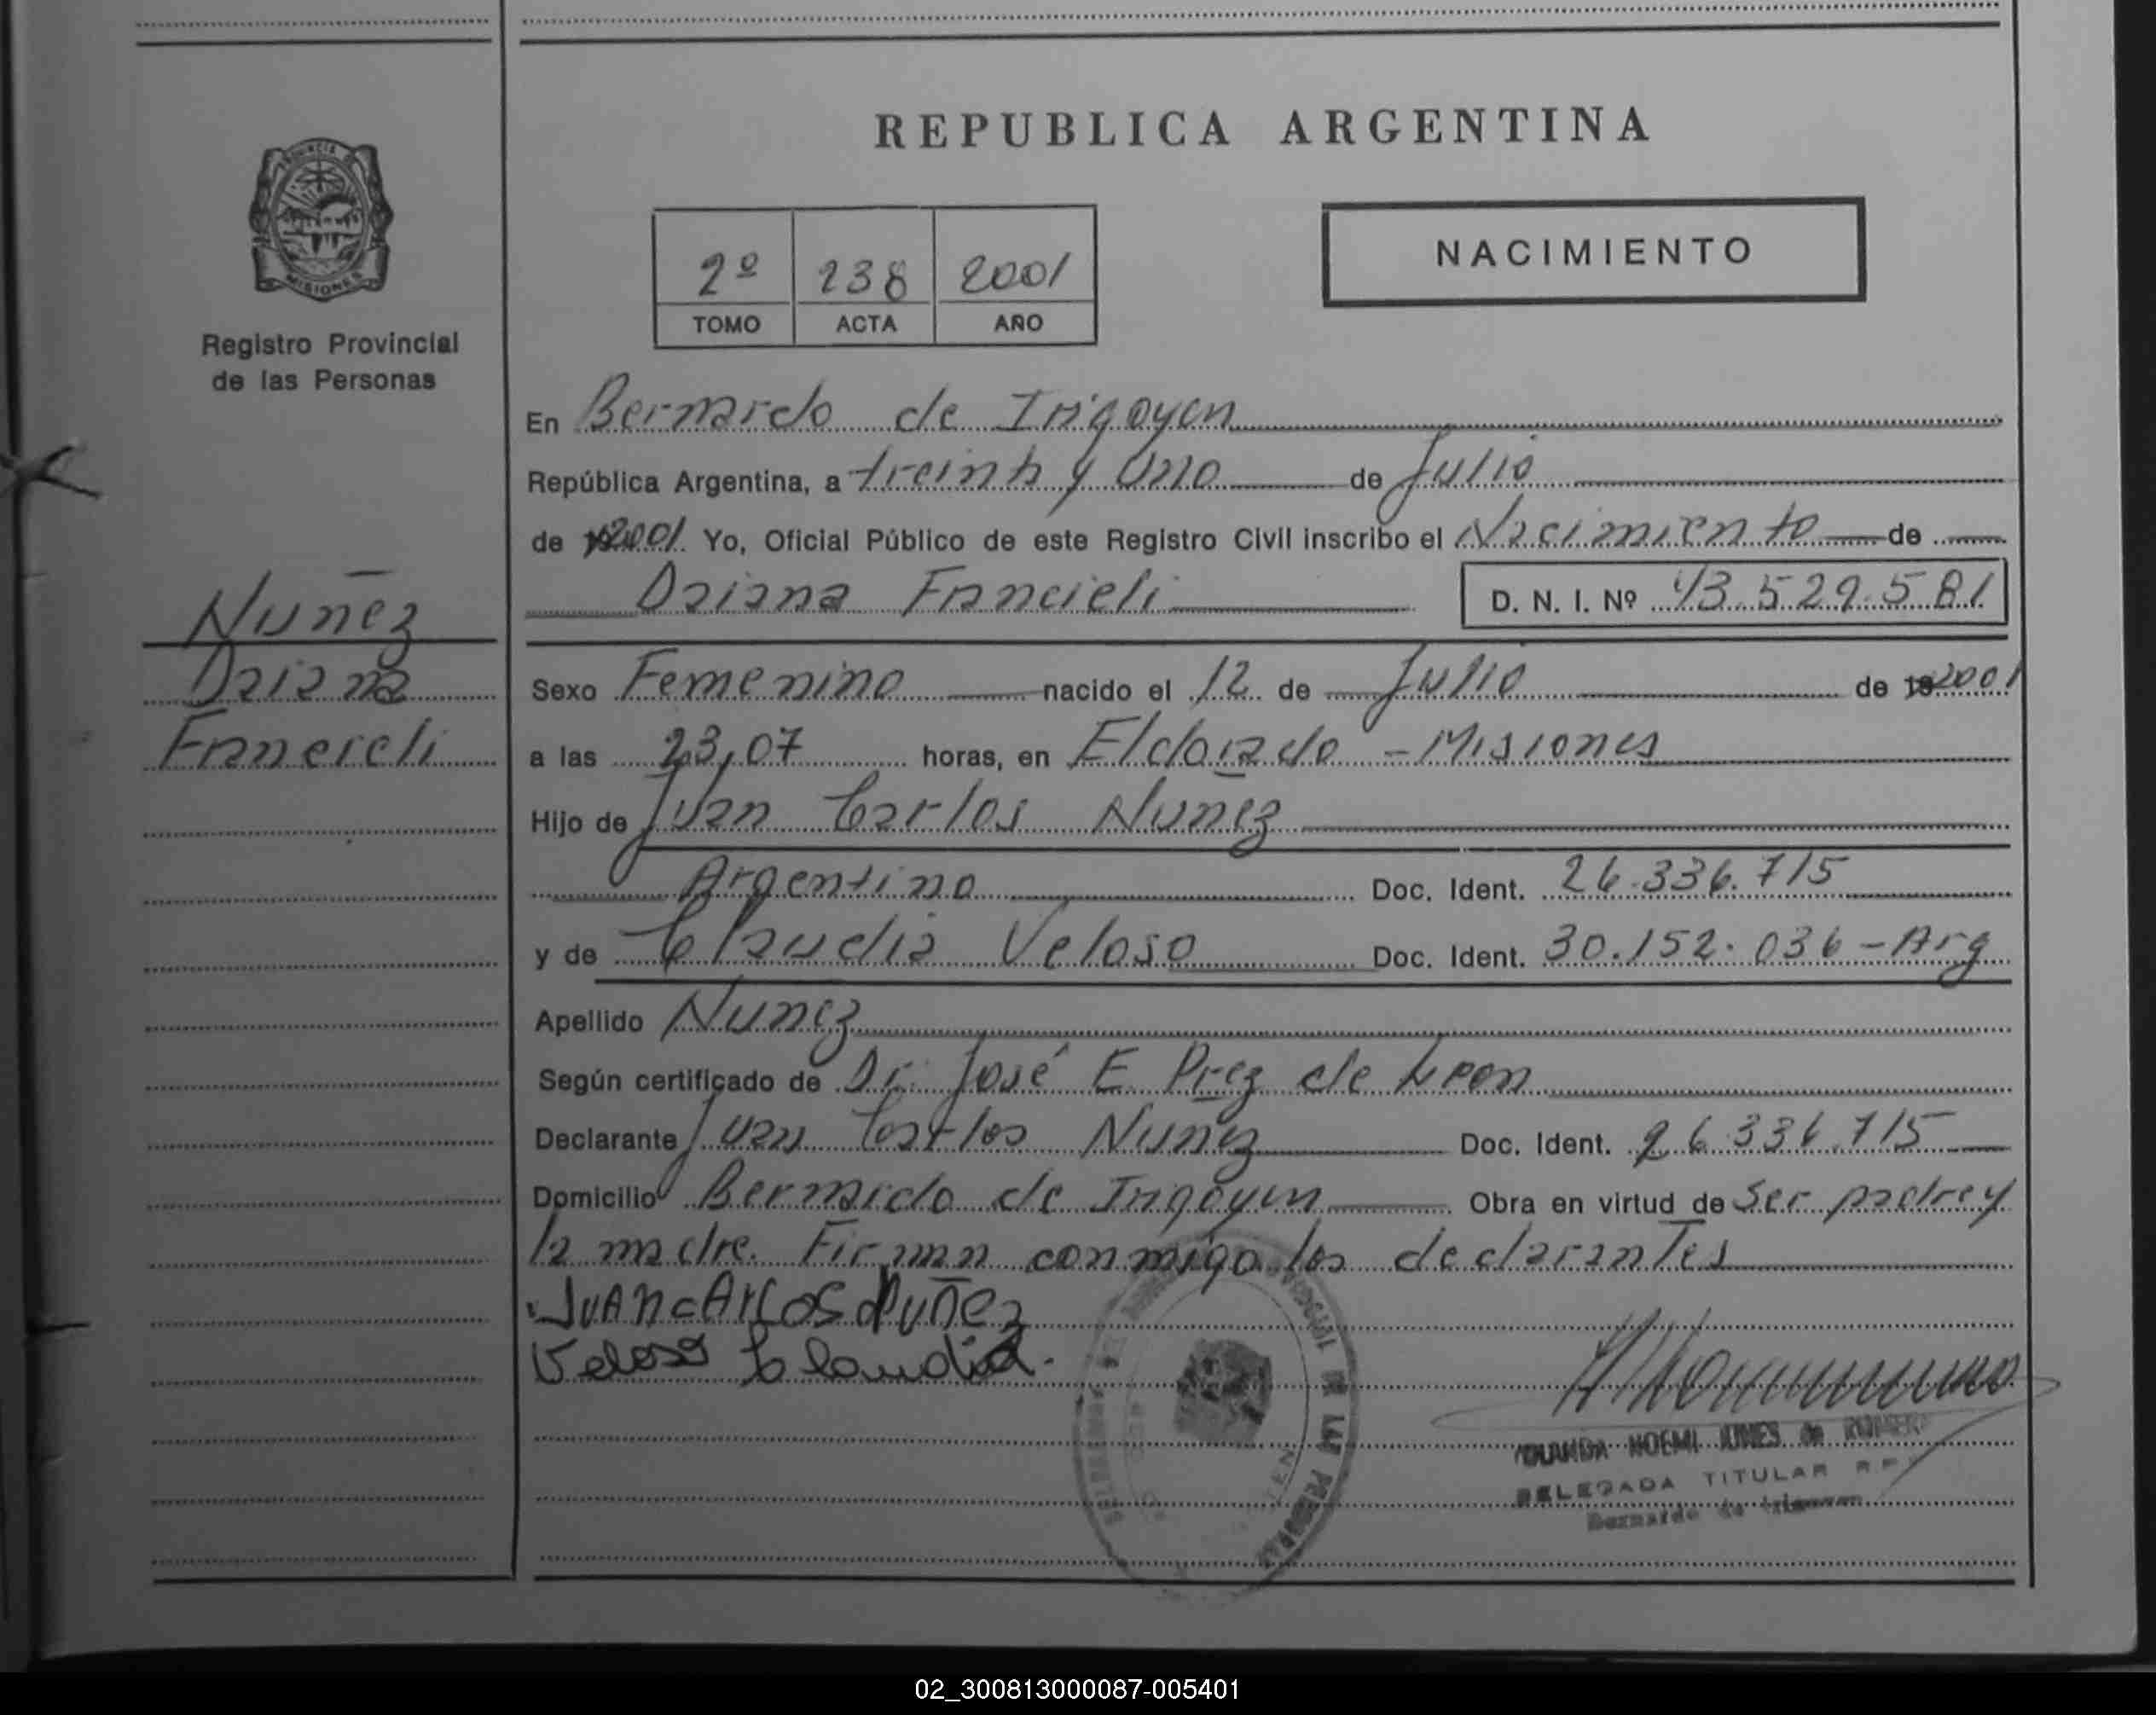 REPUBLICA ARGENTINA
PROVINCIA DE
MISIONES
Registro Provincial
de las Personas
2º 238 2001
TOMO ACTA AÑO
NACIMIENTO
En Bernardo de Irigoyen
República Argentina, a treinta y Uno de Julio
de 2001 Yo, Oficial Público de este Registro Civil inscribo el Nacimiento de
Daiana Francieli D. N. I. Nº 43.529.581
Nuñez
Daiana
Francieli
Sexo Femenino nacido el 12 de Julio de 2001
a las 23,07 horas, en Eldorado - Misiones
Hijo de Juan Carlos Nuñez
Argentino Doc. Ident. 26.336.715
y de Claudia Veloso Doc. Ident. 30.152.036 - Arg
Apellido Nuñez
Según certificado de Dr. José E Prez de
Declarante Juan Carlos Nuñez Doc. Ident. 26.336.715
Domicilio Bernardo de Irigoyen Obra en virtud de Ser padre y
la madre. Firman conmigo los declarantes
JUAN CARLOS NUÑEZ
Veloso Claudia.
NOEMI JONES de
DELEGADA TITULAR R.P.
Bernardo de Irigoyen
02_300813000087-005401